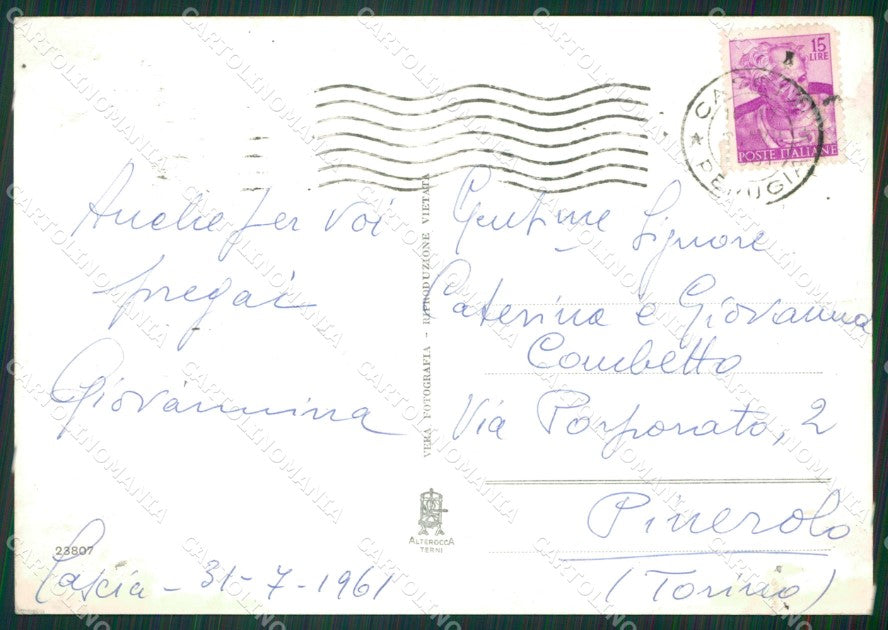 15
LIRE
POSTE ITALIANE
PERUGIA
Anche per voi
pregai
Giovannina
Cascia - 31-7-1961
23807
VERA FOTOGRAFIA - RIPRODUZIONE VIETATA
ALTEROCCA
TERNI
Gent.me Signore
Caterina e Giovanna
Combetto
Via Porporato, 2
Pinerolo
(Torino)
CARTOLINOMANIA